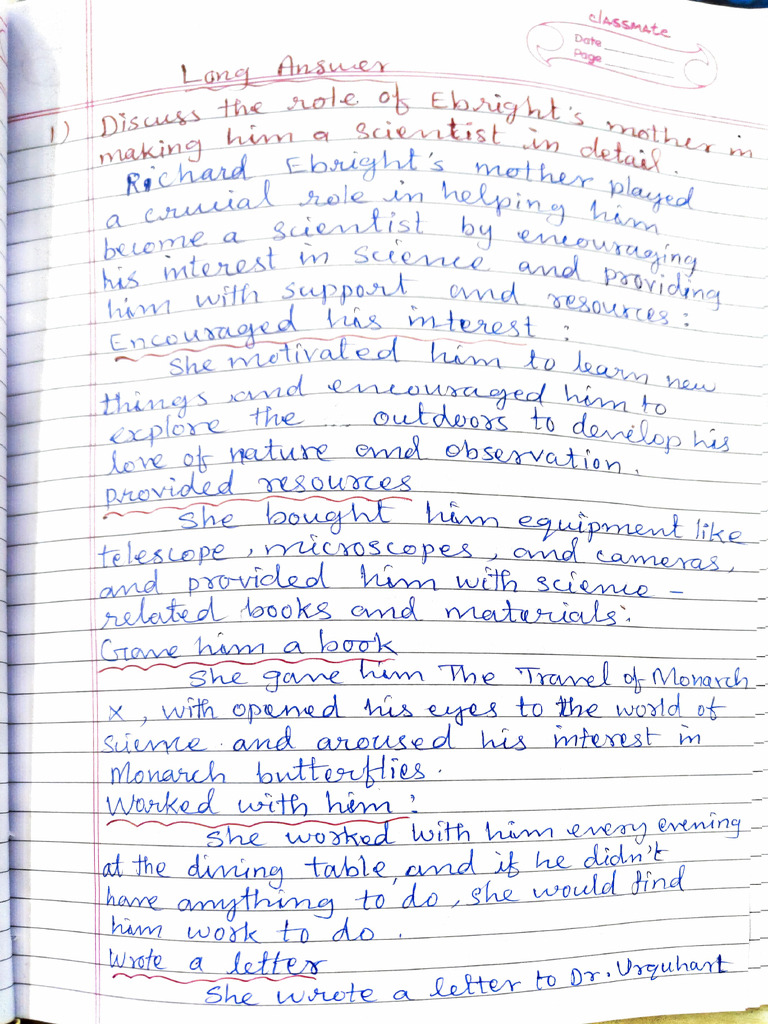 classmate
Date
Page
Long Answer
1) Discuss the role of Ebright's mother in
making him a scientist in detail.
Richard Ebright's mother played
a crucial role in helping him
become a scientist by encouraging
his interest in science and providing
him with support and resources:
Encouraged his interest:
She motivated him to learn new
things and encouraged him to
explore the outdoors to develop his
love of nature and observation.
provided resources
She bought him equipment like
telescope, microscopes, and cameras,
and provided him with science-
related books and materials.
Gave him a book
She gave him The Travel of Monarch
x, with opened his eyes to the world of
science and aroused his interest in
Monarch butterflies.
Worked with him:
She worked with him every evening
at the dining table, and if he didn't
have anything to do, she would find
him work to do.
Wrote a letter
She wrote a letter to Dr. Urquhart